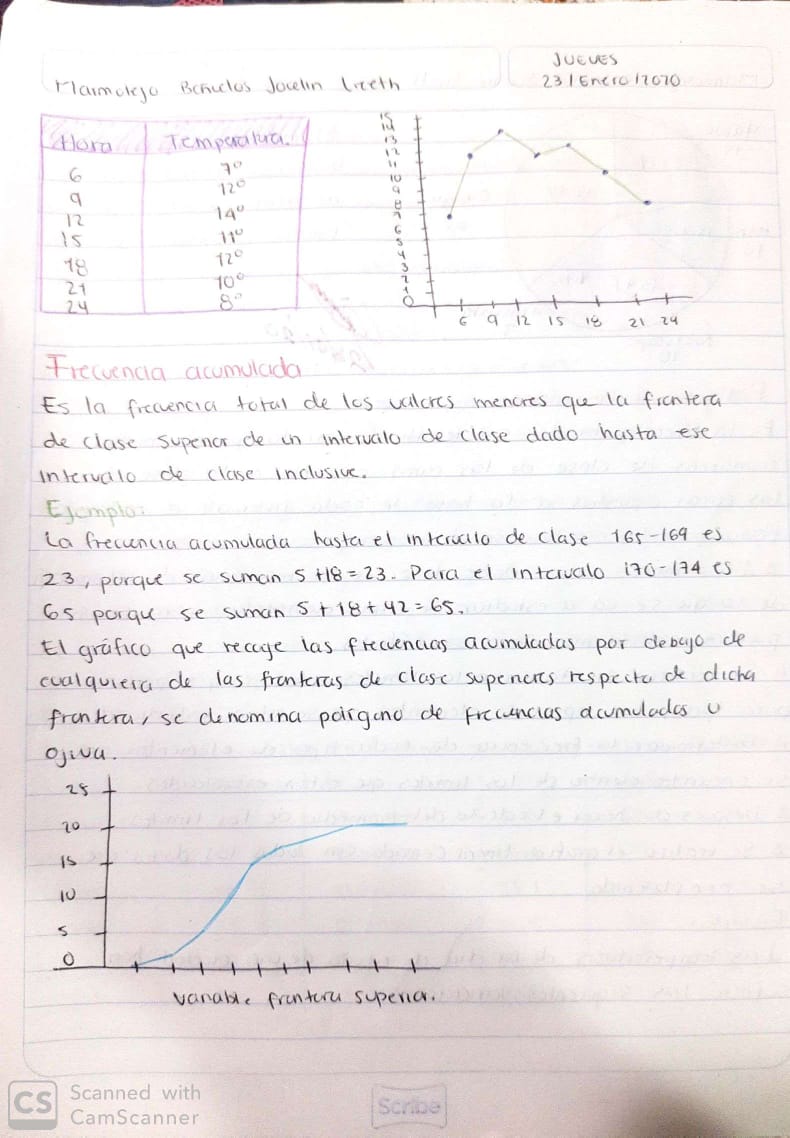 JUEVES
Marmolejo Bañuelos Jocelin Lizeth
23/Enero/2020
Hora Temperatura.
6 7°
9 12°
12 14°
15 11°
18 12°
21 10°
24 8°
15
14
13
12
11
10
9
8
7
6
5
4
3
2
1
0
6 9 12 15 18 21 24
Frecuencia acumulada
Es la frecuencia total de los valores menores que la frontera
de clase superior de un intervalo de clase dado hasta ese
intervalo de clase inclusive.
Ejemplo:
La frecuencia acumulada hasta el intervalo de clase 165-169 es
23, porque se suman 5+18=23. Para el intervalo 170-174 es
65 porque se suman 5+18+42=65.
El gráfico que recoge las frecuencias acumuladas por debajo de
cualquiera de las fronteras de clase superiores respecto de dicha
frontera, se denomina poirgono de frecuencias acumulados u
ojiva.
25
20
15
10
5
0
variable frontera superior.
CS Scanned with
CamScanner
Scribe